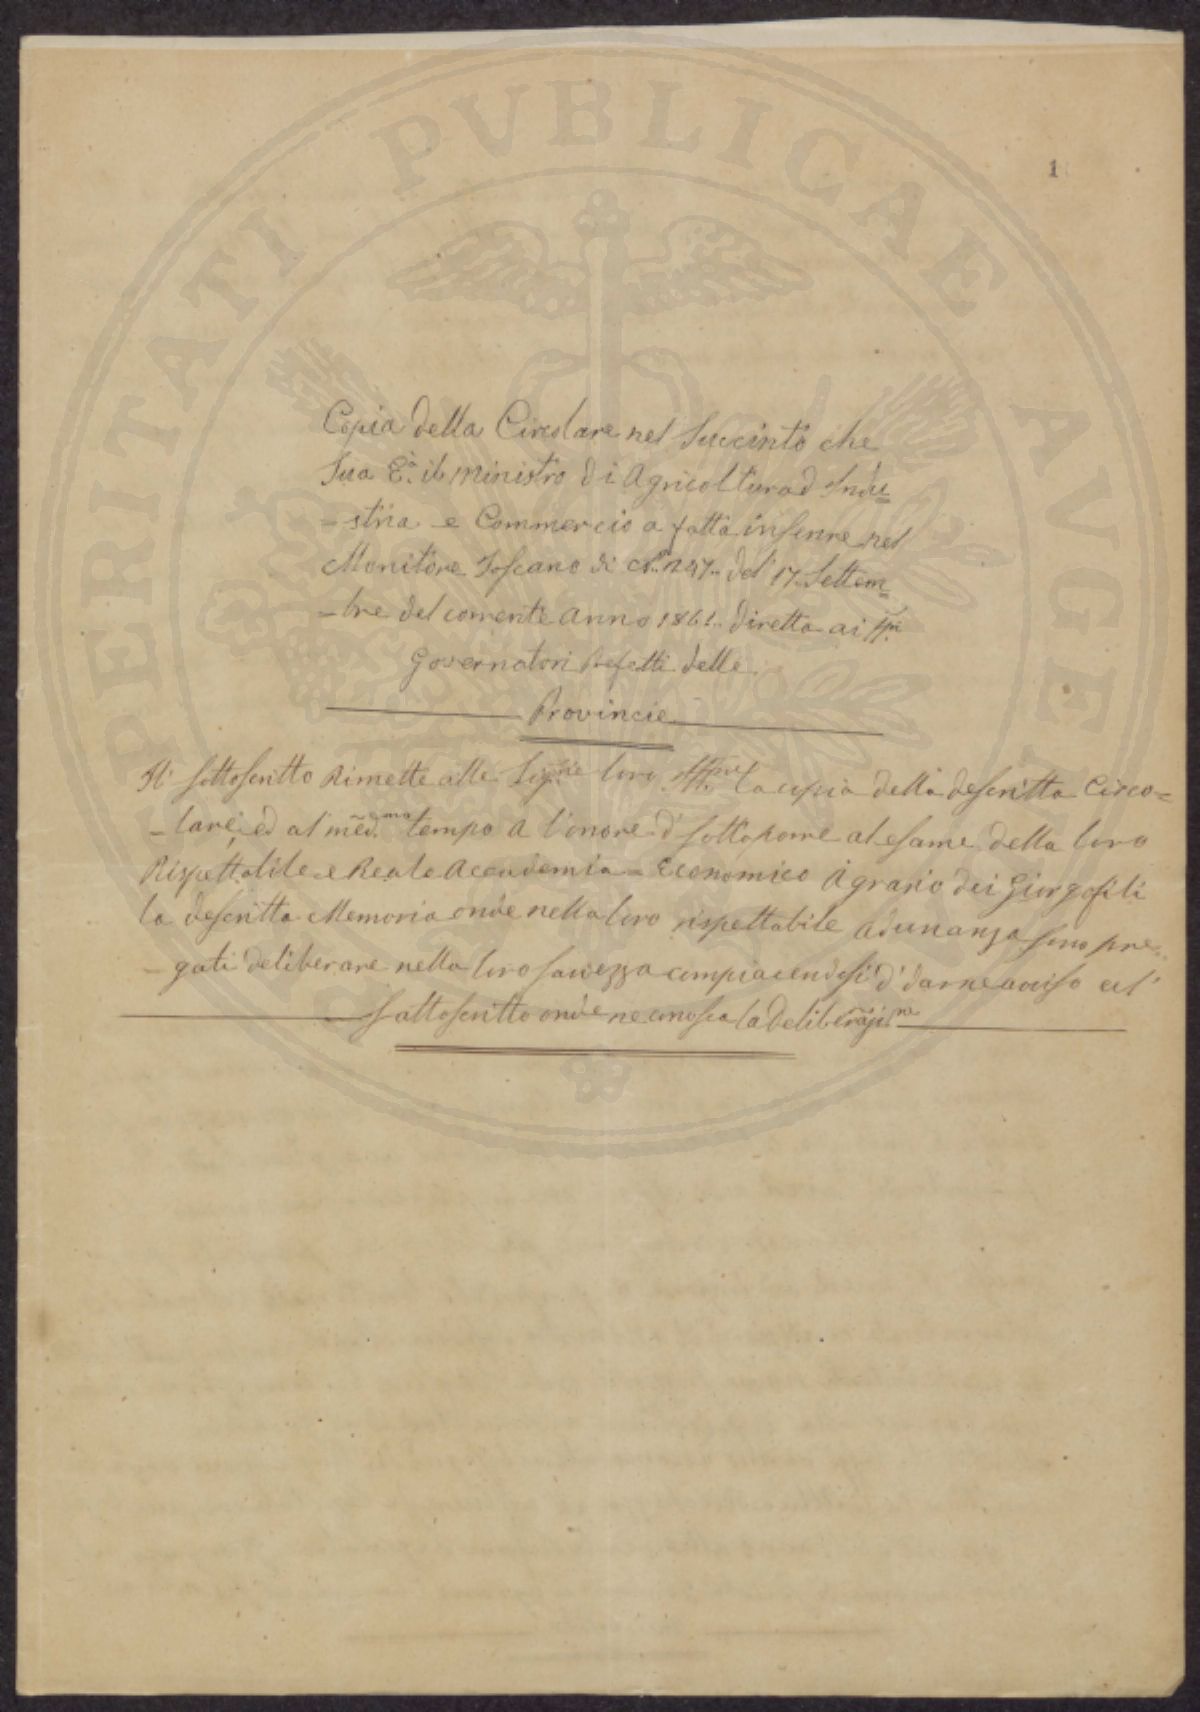 PROSPERITATI PVBLICAE AVGENDAE
1
Copia della Circolare nel Succinto che
Sua E.a il Ministro di Agricoltura d' Indu
= stria e Commercio a fatta inserire nel
Monitore Toscano di N.o 247.. del 17. Settem
= bre del corrente anno 1861.. diretta ai SS.ri
Governatori Prefetti delle
Provincie
Il sottoscritto Rimette alle Sig.rie loro Ill.me la copia della descritta Circo=
= lare, ed al med.mo tempo a l'onore d' sottoporre al esame della loro
Rispettabile e Reale Accademia = Economico Agrario dei Giorgofili
la descritta Memoria onde nella loro rispettabile adunanza sono pre=
= gati deliberare nella loro saviezza compiacendosi d' darne aviso al'
sottoscritto onde ne conosca la deliberazi.ne